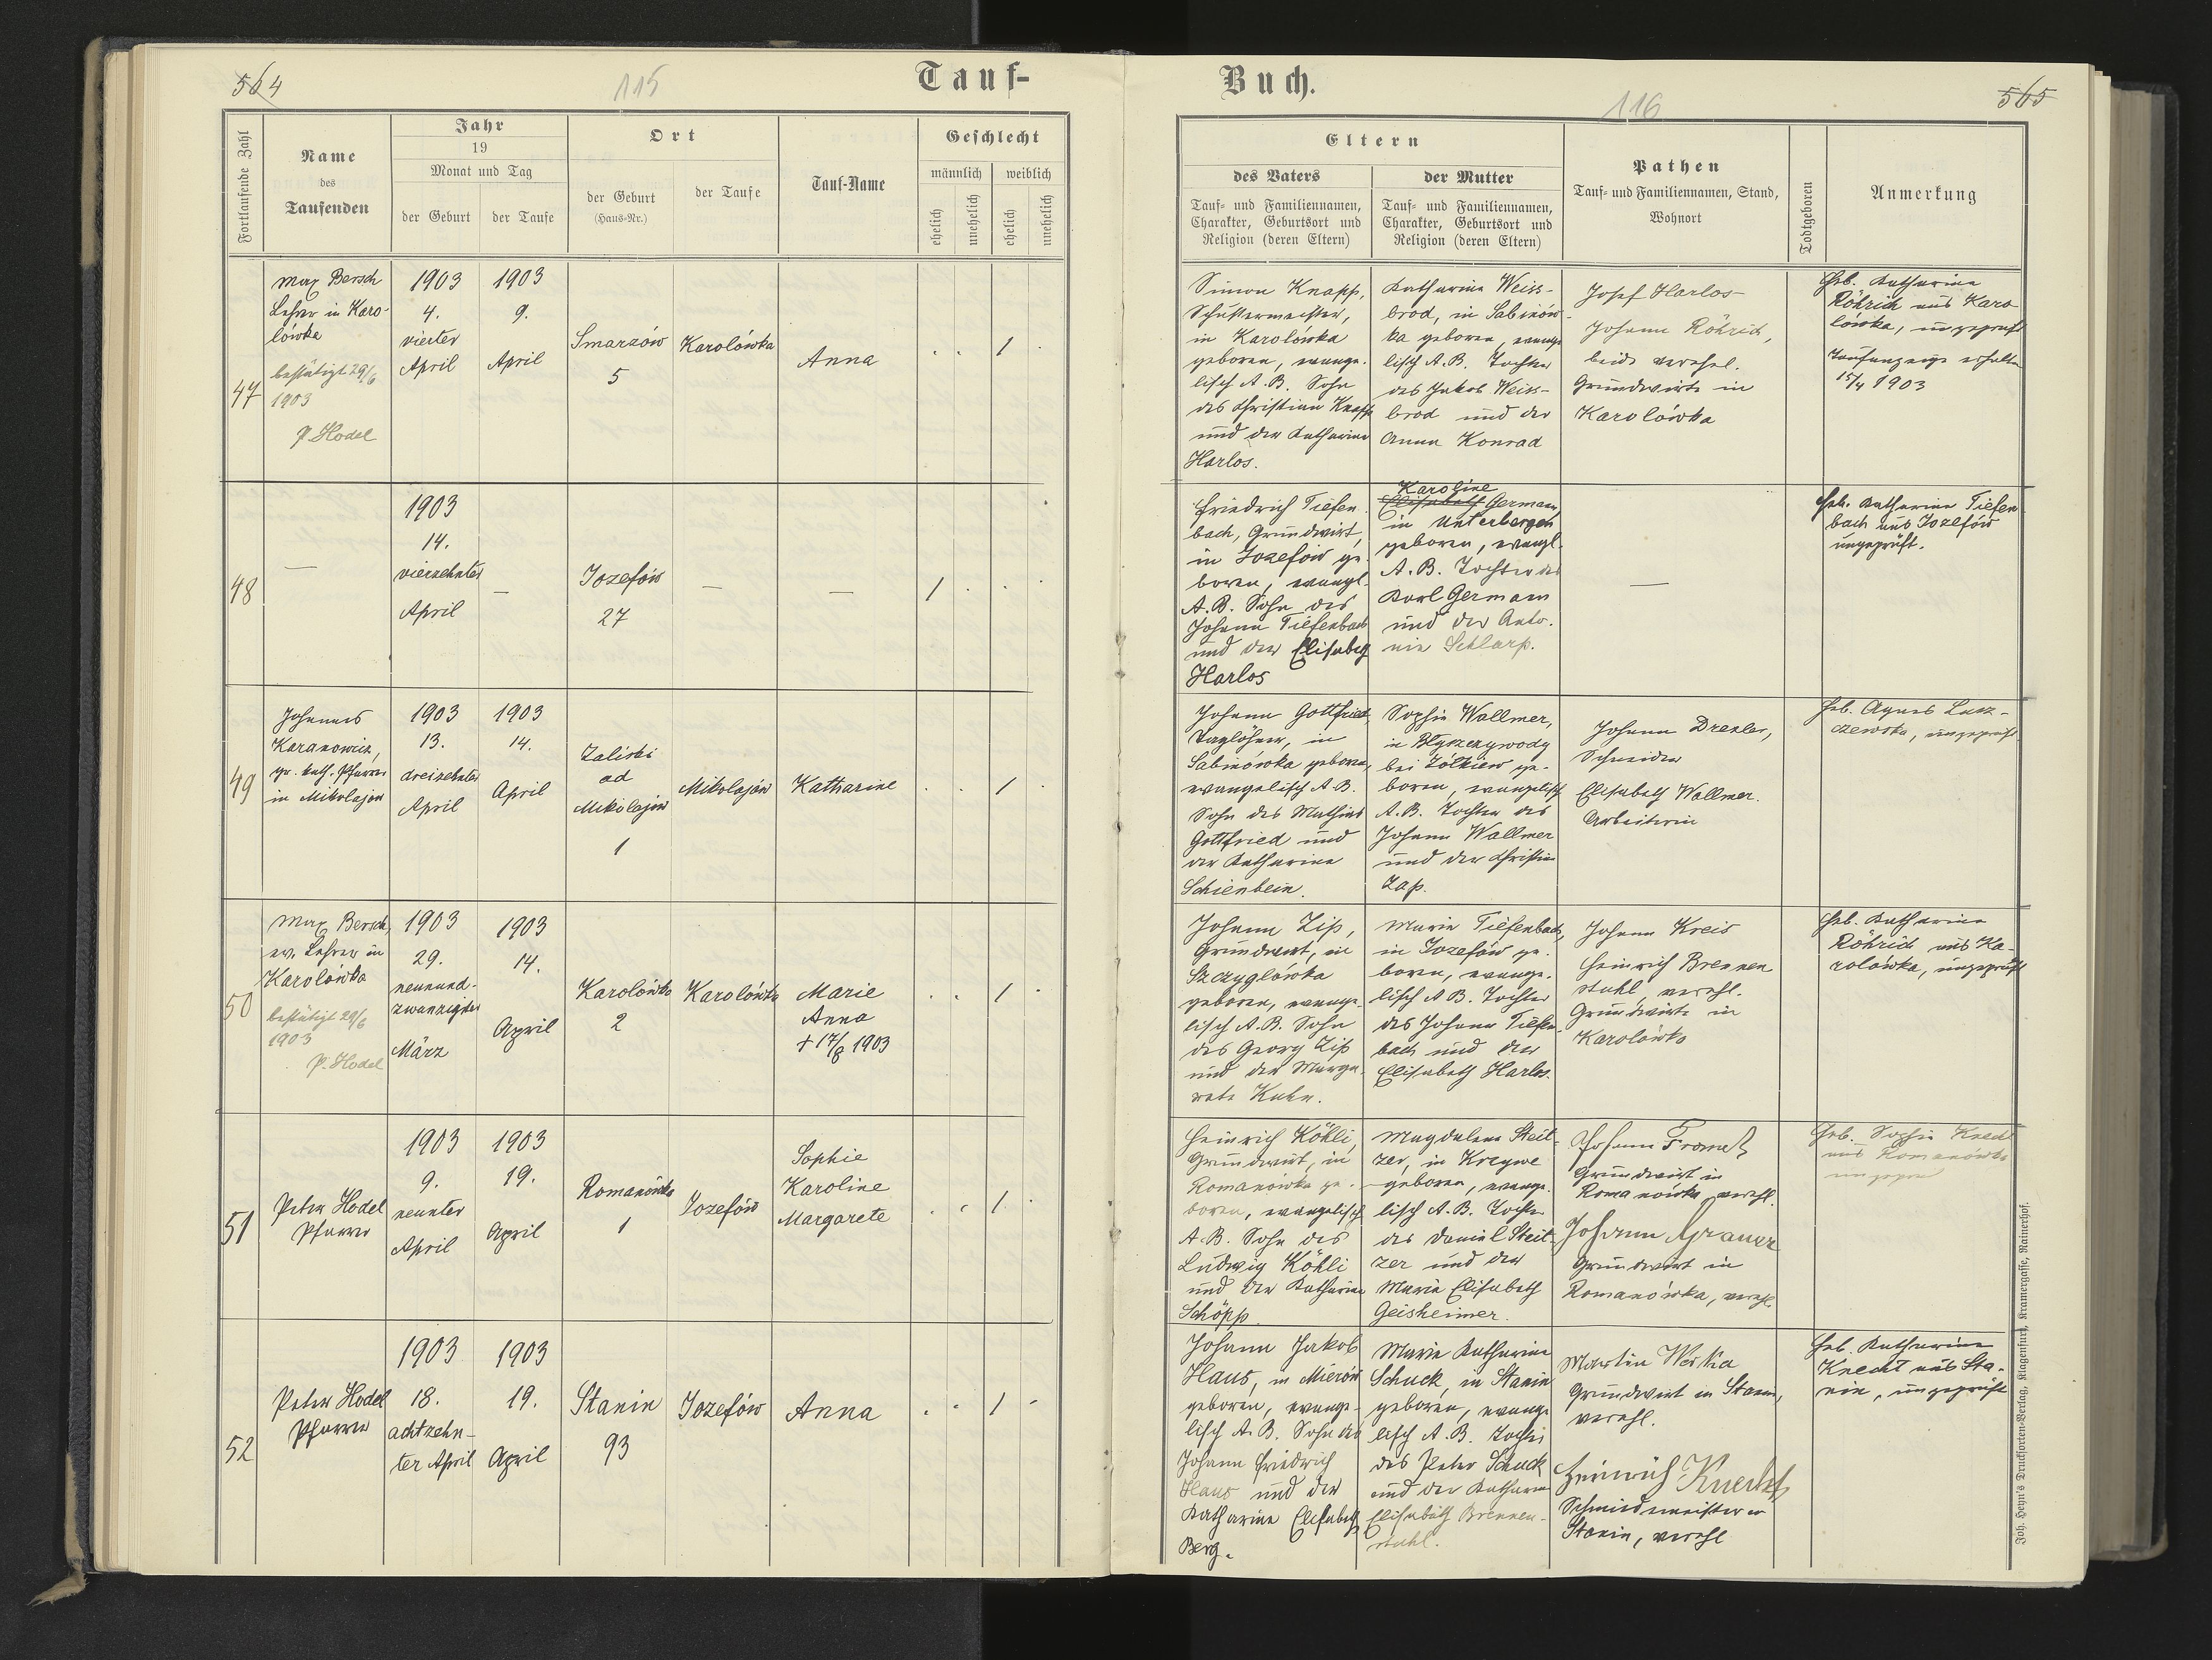 564
115
Tauf-
Fortlaufende Zahl
Name
des
Taufenden
Jahr
19
Monat und Tag
der Geburt
der Taufe
Ort
der Geburt
(Haus-Nr.)
der Taufe
Tauf-Name
Geschlecht
männlich
weiblich
ehelich
unehelich
ehelich
unehelich
47
Max Bersch
Lehrer in Karo-
lówka
bestätigt 29/6
1903
P. Hodel
1903
4.
vierter
April
1903
9.
April
Smarzów
5
Karolówka
Anna
1
48
—
1903
14.
vierzehnter
April
—
Jozefów
27
—
—
1
49
Johannes
Karanowicz,
gr. kath. Pfarrer
in Mikolajow
1903
13.
dreizehnter
April
1903
14.
April
Zaliski
ad
Mikolajów
1
Mikolajów
Katharine
1
50
Max Bersch,
ev. Lehrer in
Karolówka
bestätigt 29/6
1903
P. Hodel
1903
29.
neunund-
zwanzigster
März
1903
14.
April
Karolówka
2
Karolówka
Marie
Anna
+ 17/8 1903
1
51
Peter Hodel
Pfarrer
1903
9.
neunter
April
1903
19.
April
Romanówka
1
Jozefów
Sophie
Karoline
Margarete
1
52
Peter Hodel
Pfarrer
1903
18.
achtzehn-
ter April
1903
19.
April
Stanin
93
Jozefów
Anna
1
Buch.
116
565
Eltern
des Vaters
Tauf- und Familiennamen,
Charakter, Geburtsort und
Religion (deren Eltern)
der Mutter
Tauf- und Familiennamen,
Charakter, Geburtsort und
Religion (deren Eltern)
Pathen
Tauf- und Familiennamen, Stand,
Wohnort
Todtgeboren
Anmerkung
Simon Knapp,
Schustermeister,
in Karolówka
geboren, evange-
lisch A.B. Sohn
des Christian Knapp
und der Katharina
Harlos.
Katharina Weiss-
brod, in Sabinów-
ka geboren, evange
lisch A.B. Tochter
des Jakob Weiss-
brod und der
Anna Konrad
Josef Harlos
Johann Röhrich,
beide verehel.
Grundwirte in
Karolówka
Heb. Katharina
Röhrich aus Karo
lówka, ungeprüft
Taufanzeige erhalten
15/4 1903
Friedrich Tiefen-
bach, Grundwirt,
in Jozefów ge-
boren, evangl.
A.B. Sohn des
Johann Tiefenbach
und der Elisabeth
Harlos
Karoline
Elisabeth German,
in Unterbergen
geboren, evangl.
A.B. Tochter des
Karl German
und der Anto-
nie Schlarp.
—
Heb. Katharina Tiefen
bach aus Jozefów
ungeprüft.
Johann Gottfried,
Taglöhner, in
Sabinowka geboren,
evangelisch A.B.
Sohn des Mathias
Gottfried und
der Katharina
Schienbein.
Sophie Wallmer,
in
bei Zólkiew ge-
boren, evangelisch
A.B. Tochter des
Johann Wallmer
und der Christine
Zap.
Johann Drexler,
Schneider
Elisabeth Wallmer.
Arbeiterin
Heb. Agnes Lusz-
czewska, ungeprüft
Johann Zip,
Grundwirt, in
Szczyglówka
geboren, evange-
lisch A.B. Sohn
des Georg Zip
und der Marga-
rete Kuhn.
Maria Tiefenbach,
in Jozefów ge-
boren, evange-
lisch A.B. Tochter
des Johann Tiefen-
bach und der
Elisabeth Harlos.
Johann Kreis
Heinrich Brennen
stuhl, verehl.
Grundwirte in
Karolówka
Heb. Katharina
Röhrich aus Ka-
rolówka, ungeprüft
Heinrich Köhli,
Grundwirt, in
Romanowka ge-
boren, evangelisch
A.B. Sohn des
Ludwig Köhli
und der Katharina
Schöpp.
Magdalena Steit-
zer, in Kreywe
geboren, evange-
lisch A.B. Tochter
des Daniel Steit-
zer und der
Maria Elisabeth
Geisheimer.
Johann
Grundwirt in
Romanowka, verehl.
Johann
Grundwirt in
Romanówka, verehl.
Heb. Sophie Knecht
aus Romanówka
Johann Jakob
Haus, in Mierów
geboren, evange-
lisch A.B. Sohn des
Johann Friedrich
Haus und der
Katharina Elisabeth
Berg.
Maria Katharina
Schuck, in Stanin
geboren, evange
lisch A.B. Tochter
des Peter Schuck
und der Katharina
Elisabeth Brennen-
stuhl.
Martin
Grundwirt in Stanin,
verehl.
Heinrich Knecht
Schmiedmeister in
Stanin, verehl
Heb. Katharina
Knecht aus Sta-
nin, ungeprüft
Joh. Heyn's Drucksorten-Verlag, Klagenfurt, Kramergasse, Rainerhof.